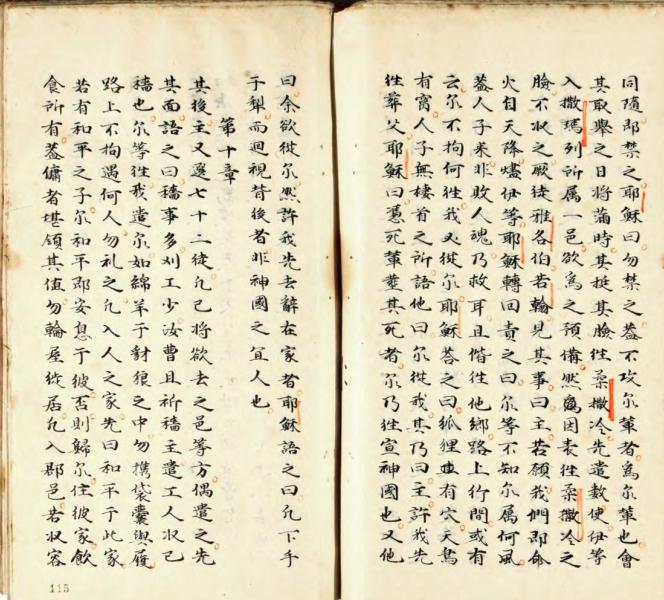 同随即禁之耶穌曰勿禁之蓋不攻尔軰者為尔軰也會
其取舉之日將滿時其挺其臉徃柔撒冷先遣数使伊等
入撒瑪列所属一邑欲為之預備然為因表徃柔撒冷之
臉不収之厥徒雅各伯若翰見其事曰主若願我們即命
火自天降燼伊等耶穌轉回責之曰尔等不知尔属何風
蓋人子来非敗人魂乃救耳且偕徃他鄉路上行間或有
云尔不拘何徃我必從尔耶穌荅之曰狐狸且有穴天鳥
有窩人子無棲首之所語他曰尔從我其乃曰主許我先
徃葬父耶穌曰憑死軰塟其死者尔乃徃宣神國也又他
曰余欲從尔然許我先去辭在家者耶穌語之曰凢下手
于犁而迴視背後者非神國之宜人也
第十章
其後主又選七十二徒凢已將欲去之邑等方偶遣之先
其面語之曰穡事多刈工少汝曹且祈穡主遣工人収已
穡也尔等徃我遣尔如綿羊于豺狼之中勿攜袋囊與履
路上不拘遇何人勿礼之凢入人之家先曰和平于此家
若有和平之子尔和平即安息于彼否則歸尔住彼家飲
食所有蓋傭者堪領其值勿輪屋徙居凢入郡邑若収容
115